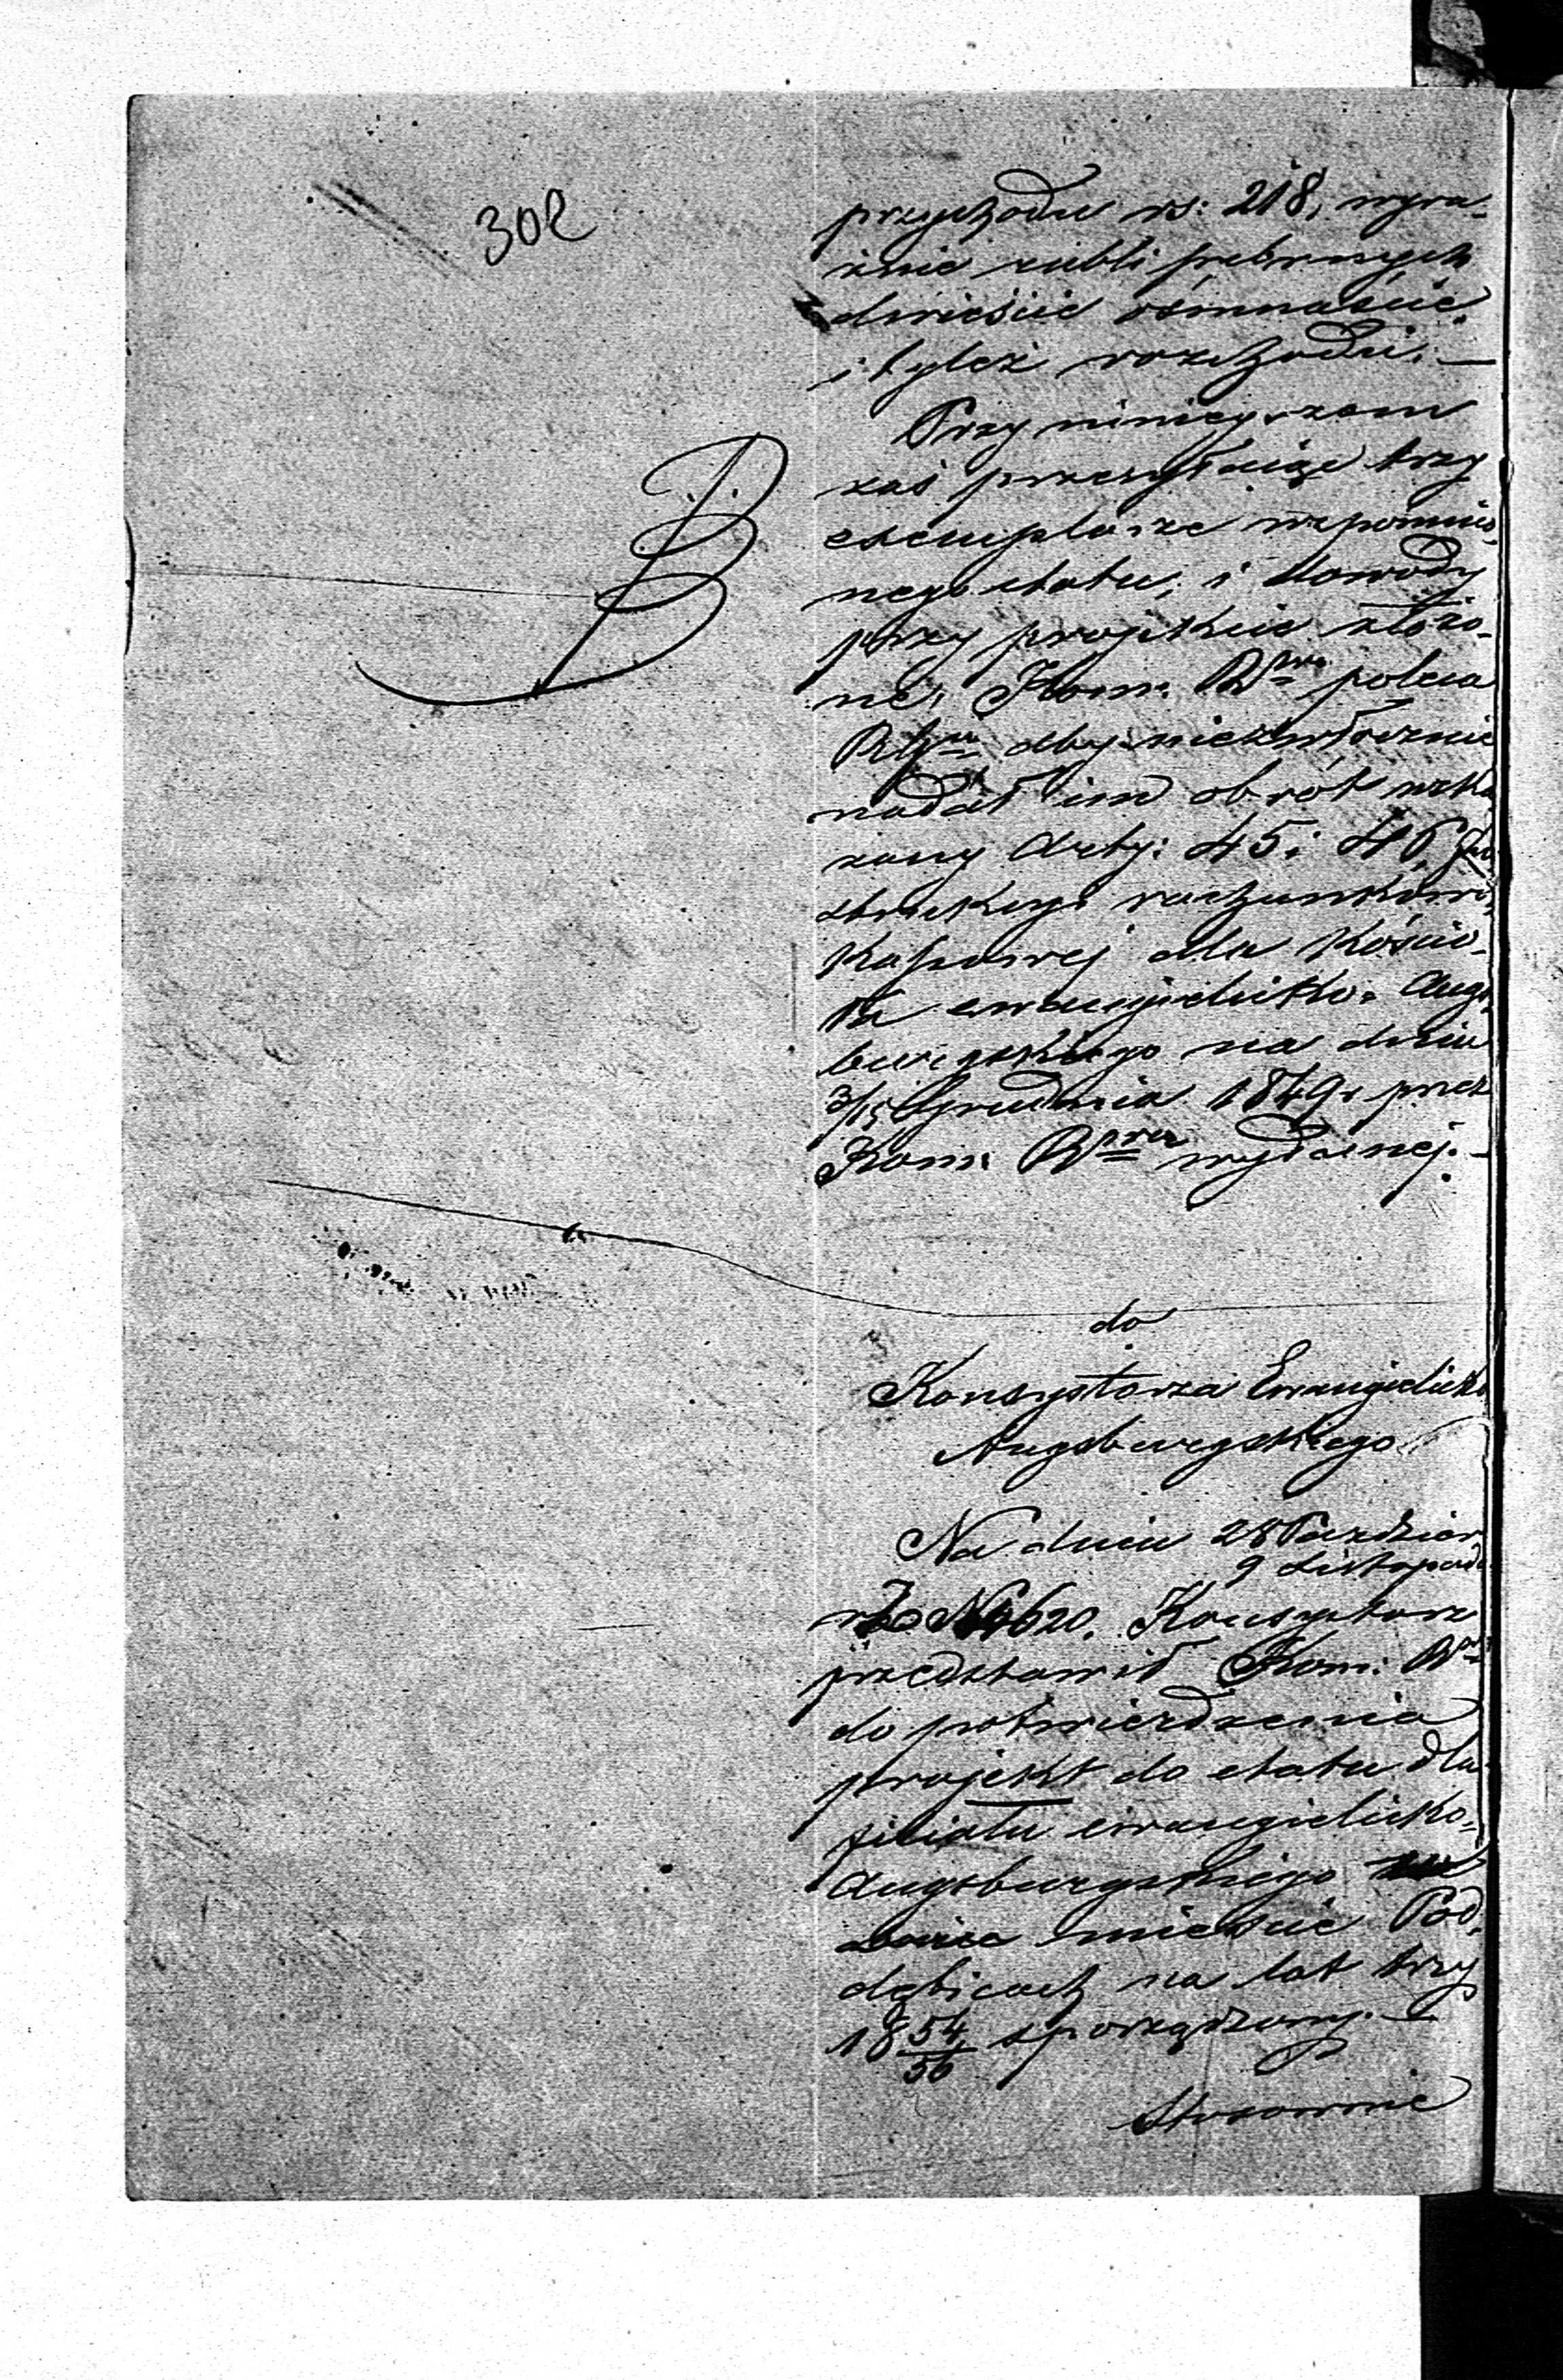 302
przychodu rs: 218, wyra-
źnie rubli srebrnych
dwieście ośmnaście,
i tyleż rozchodu. —
Przy niniejszem
zaś przesyłając trzy
exemplarze wspomnio-
nego etatu, i dowody
przy projekcie złożo-
ne, Kom: Rwa poleca
aby niezwłocznie
nadał im obrót wska
zany Arty: 45 i 46 In
strukcyi rachunkowo-
kassowej dla Kościo-
ła ewangielicko-Augs-
burgskiego na dniu
3/15 Grudnia 1849 r przez
Kom: Rwa wydanej. —
do
Konsystorza Ewangielicko
Augsburgskiego
Na dniu 28 Paździer
9 Listopada
No 1620. Konsystorz
przedstawił Kom: Rwa
do potwierdzenia
projekt do etatu dla
filiału ewangielicko-
Augsburgskiego
mieście Pod-
dębicach na lat trzy
18 54/56 sporządzony. —
Stosownie